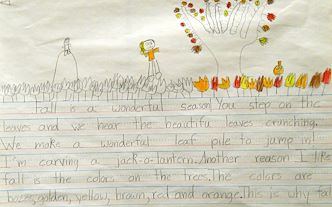 Fall is a wonderful season. You step on the
leaves and we hear the beautiful leaves crunching.
We make a wonderful leaf pile to jump in!
I'm carving a jack-o-lantern. Another reason I like
fall is the colors on the trees. The colors are
golden, yellow, brown, red and orange. This is why fa